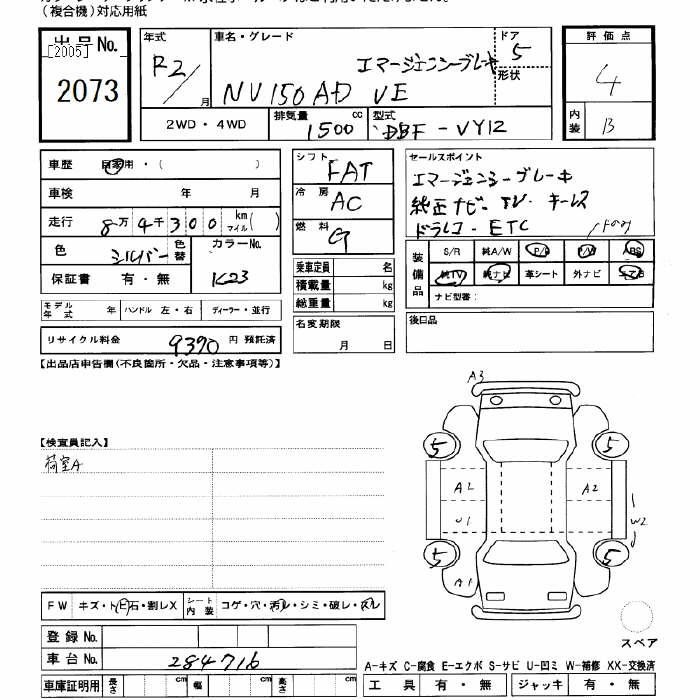 (複合機)対応用紙
出品No.
[2005]
2073
年式
R2/
月
車名・グレード
エマージェンシーブレーキ
NV150AD VE
ドア
5
形状
2WD・4WD
排気量
1500
cc
型式
DBF-VY12
評価点
4
内装
B
車歴
自家用・( )
車検
年 月
走行
8万 4千 300 km マイル( )
色
シルバー
色替
カラーNo.
K23
保証書
有・無
モデル年式
年
ハンドル
左・右
ディーラー・並行
リサイクル料金
9390
円
預託済
シフト
FAT
冷房
AC
燃料
G
乗車定員
名
積載量
kg
総重量
kg
名変期限
月 日
セールスポイント
エマージェンシーブレーキ
純正ナビ・TV・キーレス
ドラレコ・ETC
装備品
S/R
純A/W
P/S
P/W
ABS
純TV
純ナビ
革シート
外ナビ
ナビ型番:
後日品
【出品店申告欄(不良箇所・欠品・注意事項等)】
【検査員記入】
荷室A
A3
5
5
A2
A2
U1
W2
5
5
A1
スペア
FW
キズ・トビ石・割レX
シート内装
コゲ・穴・汚レ・シミ・破レ・スレ
登録No.
車台No.
284716
車庫証明用
長さ
cm
幅
cm
高さ
cm
A-キズ C-腐食 E-エクボ S-サビ U-凹ミ W-補修 XX-交換済
工具
有・無
ジャッキ
有・無